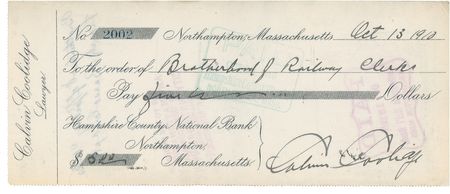 Calvin Coolidge
Lawyer
No 2002 Northampton, Massachusetts Oct 13 1910
To the order of Brotherhood of Railway Clerks
Pay five Dollars
Hampshire County National Bank
Northampton,
$ 5.00 Massachusetts
Calvin Coolidge